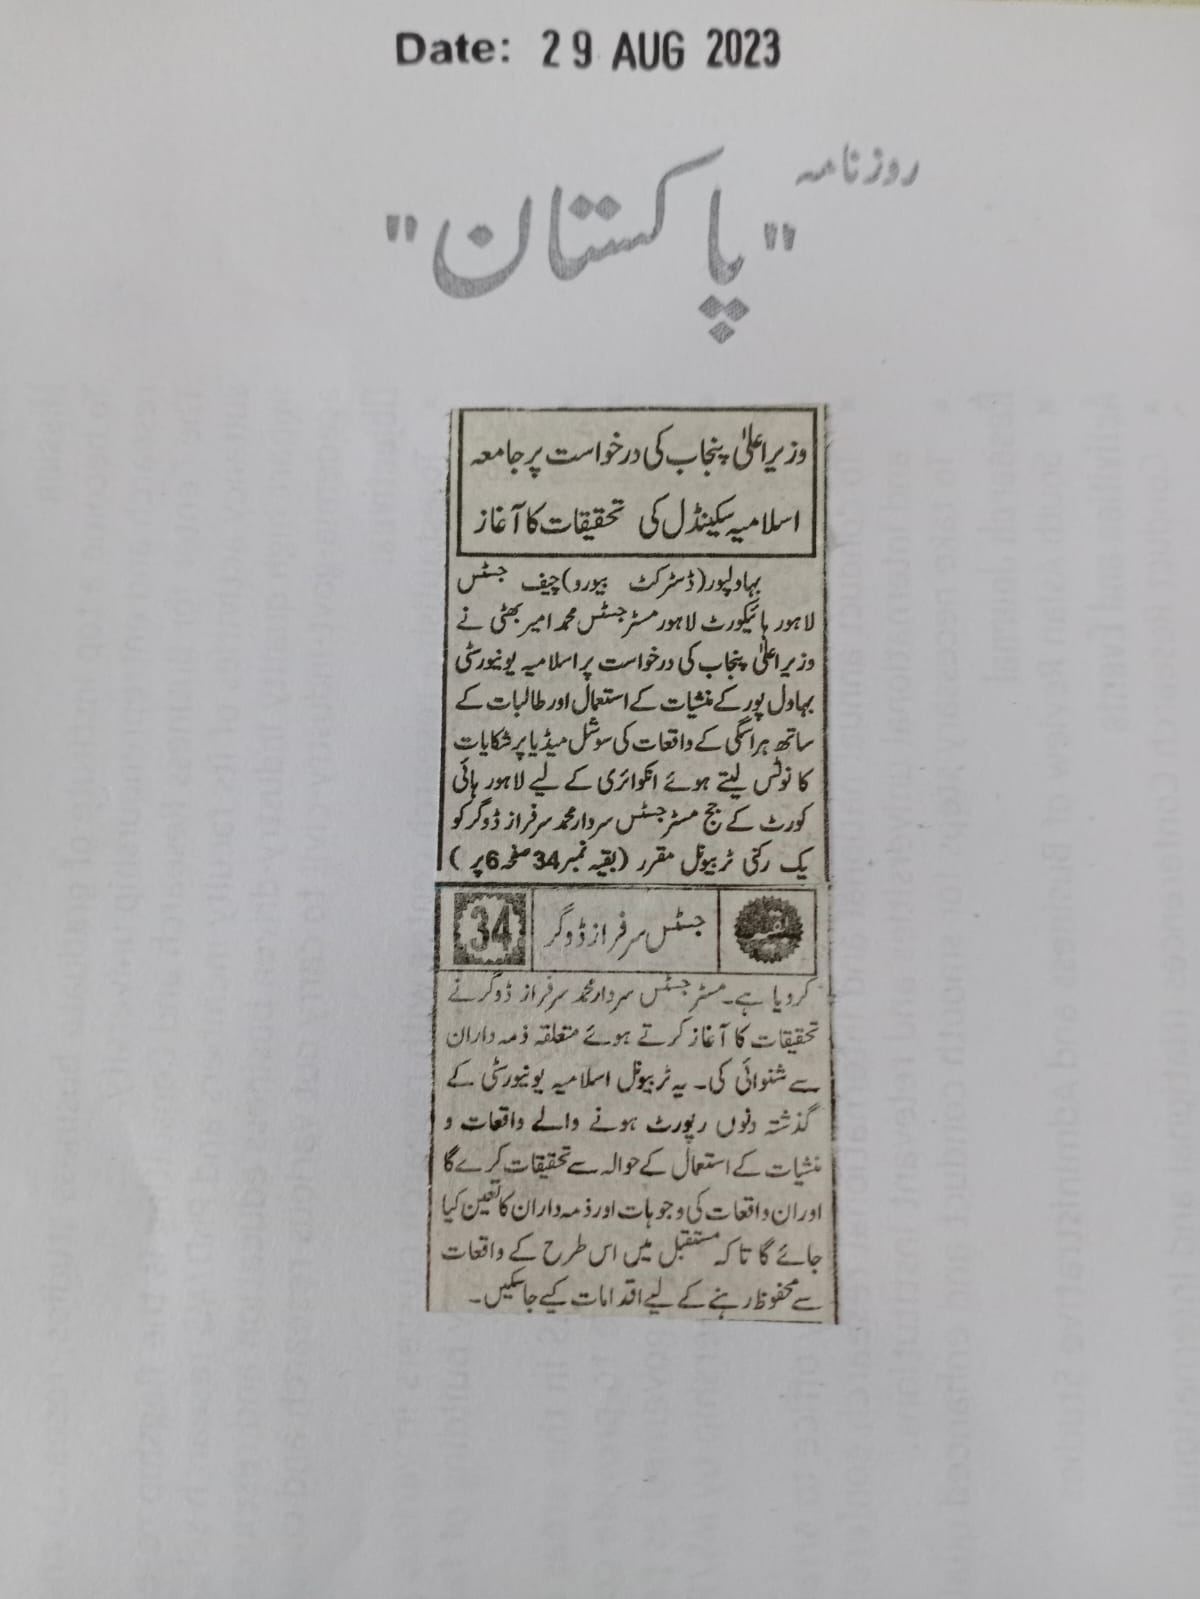 Date: 29 AUG 2023
روزنامہ
"پاکستان"
وزیراعلیٰ پنجاب کی درخواست پر جامعہ
اسلامیہ سکینڈل کی تحقیقات کا آغاز
بہاولپور (ڈسٹرکٹ بیورو) چیف جسٹس
لاہور ہائیکورٹ لاہور مسٹر جسٹس محمد امیر بھٹی نے
وزیراعلیٰ پنجاب کی درخواست پر اسلامیہ یونیورسٹی
بہاول پور کے منشیات کے استعمال اور طالبات کے
ساتھ ہراسگی کے واقعات کی سوشل میڈیا پر شکایات
کا نوٹس لیتے ہوئے انکوائری کے لیے لاہور ہائی
کورٹ کے جج مسٹر جسٹس سردار محمد سرفراز ڈوگر کو
یک رکنی ٹربیونل مقرر (بقیہ نمبر 34 صفحہ 6 پر)
بقیہ جسٹس سرفراز ڈوگر 34
کردیا ہے۔ مسٹر جسٹس سردار محمد سرفراز ڈوگر نے
تحقیقات کا آغاز کرتے ہوئے متعلقہ ذمہ داران
سے شنوائی کی۔ یہ ٹربیونل اسلامیہ یونیورسٹی کے
گذشتہ دنوں رپورٹ ہونے والے واقعات و
منشیات کے استعمال کے حوالہ سے تحقیقات کرے گا
اور ان واقعات کی وجوہات اور ذمہ داران کا تعین کیا
جائے گا تاکہ مستقبل میں اس طرح کے واقعات
سے محفوظ رہنے کے لیے اقدامات کیے جاسکیں۔